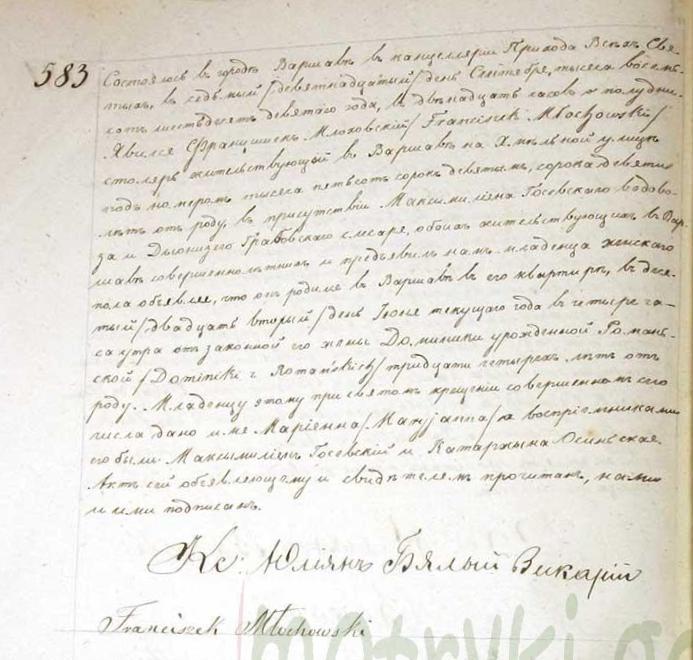 583
Состоялось въ городѣ Варшавѣ въ канцелляріи Прихода Всѣхъ Свя-
тыхъ, въ седьмый /девятнадцатый/ день Сентября, тысяча восемь-
сотъ шестьдесятъ девятаго года, въ двѣнадцать часовъ полудни.
Явился Францишекъ Млоховскій /Franciszek Młochowski/
столяръ жительствующій въ Варшавѣ на Хмѣльной улицѣ
подъ номеромъ тысяча пятьсотъ сорокъ девятымъ, сорока девяти
лѣтъ отъ роду, въ присутствіи Максимиліяна Госевскаго водово-
за и Діонизего Грабовскаго слесаря, обоихъ жительствующихъ въ Вар-
шавѣ совершеннолѣтнихъ и предъявилъ намъ младенца женскаго
пола объявляя, что онъ родился въ Варшавѣ въ его квартирѣ, въ деся-
тый /двадцать вторый/ день Іюня текущаго года въ четыре ча-
са утра отъ законной его жены Доминики урожденной Романь-
ской /Dominiki z Romańskich/ тридцати четырехъ лѣтъ отъ
роду. Младенцу этому при святомъ крещеніи совершенномъ сего
числа дано имя Маріянна /Maryjanna/ а воспріемниками
его были Максимиліянъ Госевскій и Катаржына Осиньская.
Актъ сей объявляющему и свидѣтелямъ прочитанъ, нами
и ими подписанъ.
Кс: Юліянъ Бялый Викарій
Franciszek Młochowski